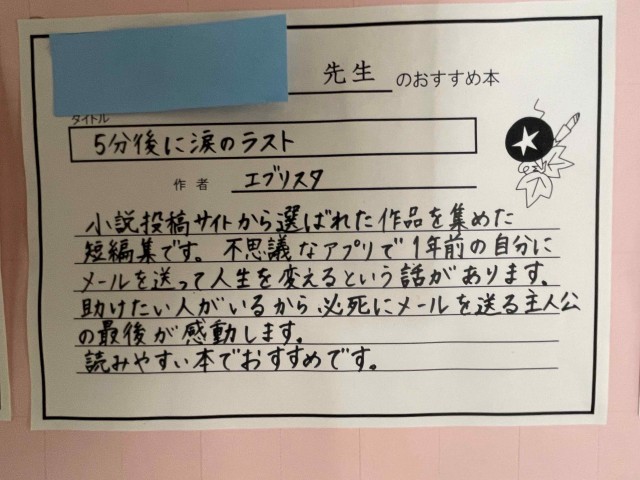 先生のおすすめ本
タイトル
5分後に涙のラスト
作者 エブリスタ
小説投稿サイトから選ばれた作品を集めた
短編集です。不思議なアプリで1年前の自分に
メールを送って人生を変えるという話があります。
助けたい人がいるから、必死にメールを送る主人公
の最後が感動します。
読みやすい本でおすすめです。